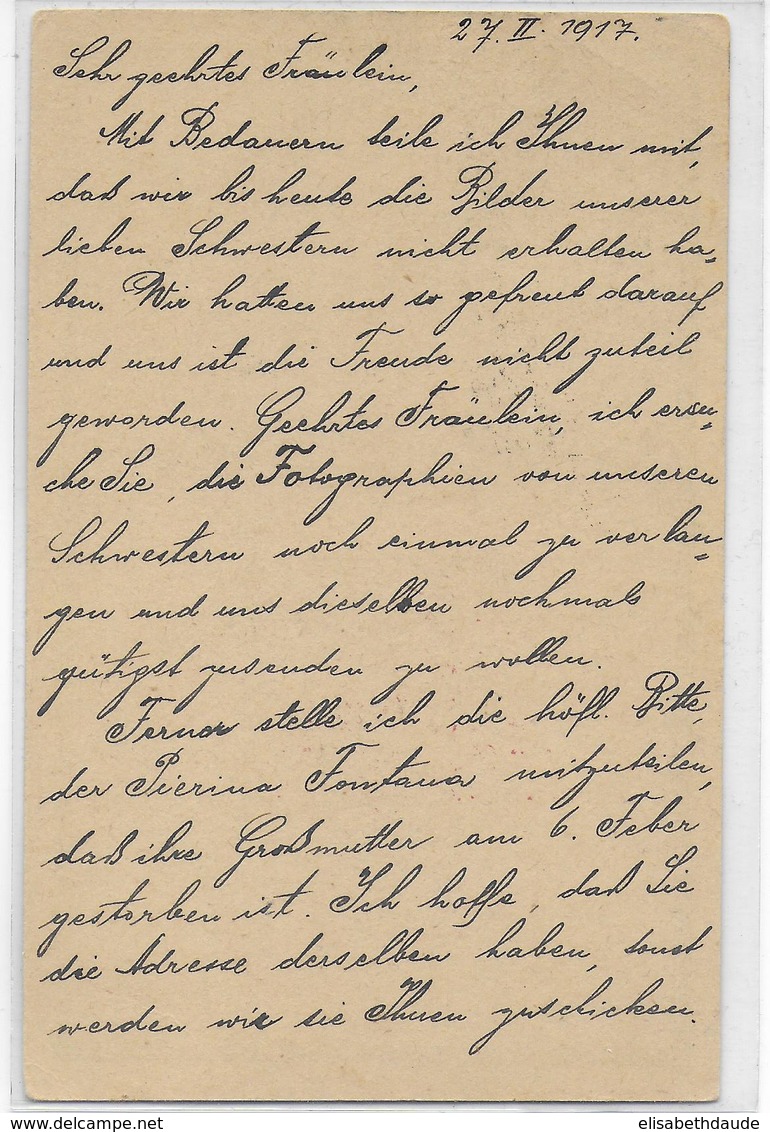 27. II. 1917.
Sehr geehrtes Fräulein,
Mit Bedauern teile ich Ihnen mit,
daß wir bis heute die Bilder unserer
lieben Schwestern nicht erhalten ha-
ben. Wir hatten uns so gefreut darauf
und uns ist die Freude nicht zuteil
geworden. Geehrtes Fräulein, ich ersu-
che Sie, die Fotographien von unseren
Schwestern noch einmal zu verlan-
gen und uns dieselben nochmals
gütigst zusenden zu wollen.
Ferner stelle ich die höfl. Bitte,
der Pierina Fontana mitzuteilen,
daß ihre Großmutter am 6. Feber
gestorben ist. Ich hoffe, daß Sie
die Adresse derselben haben, sonst
werden wir sie Ihnen zuschicken.
delcampe.net
elisabethdaude